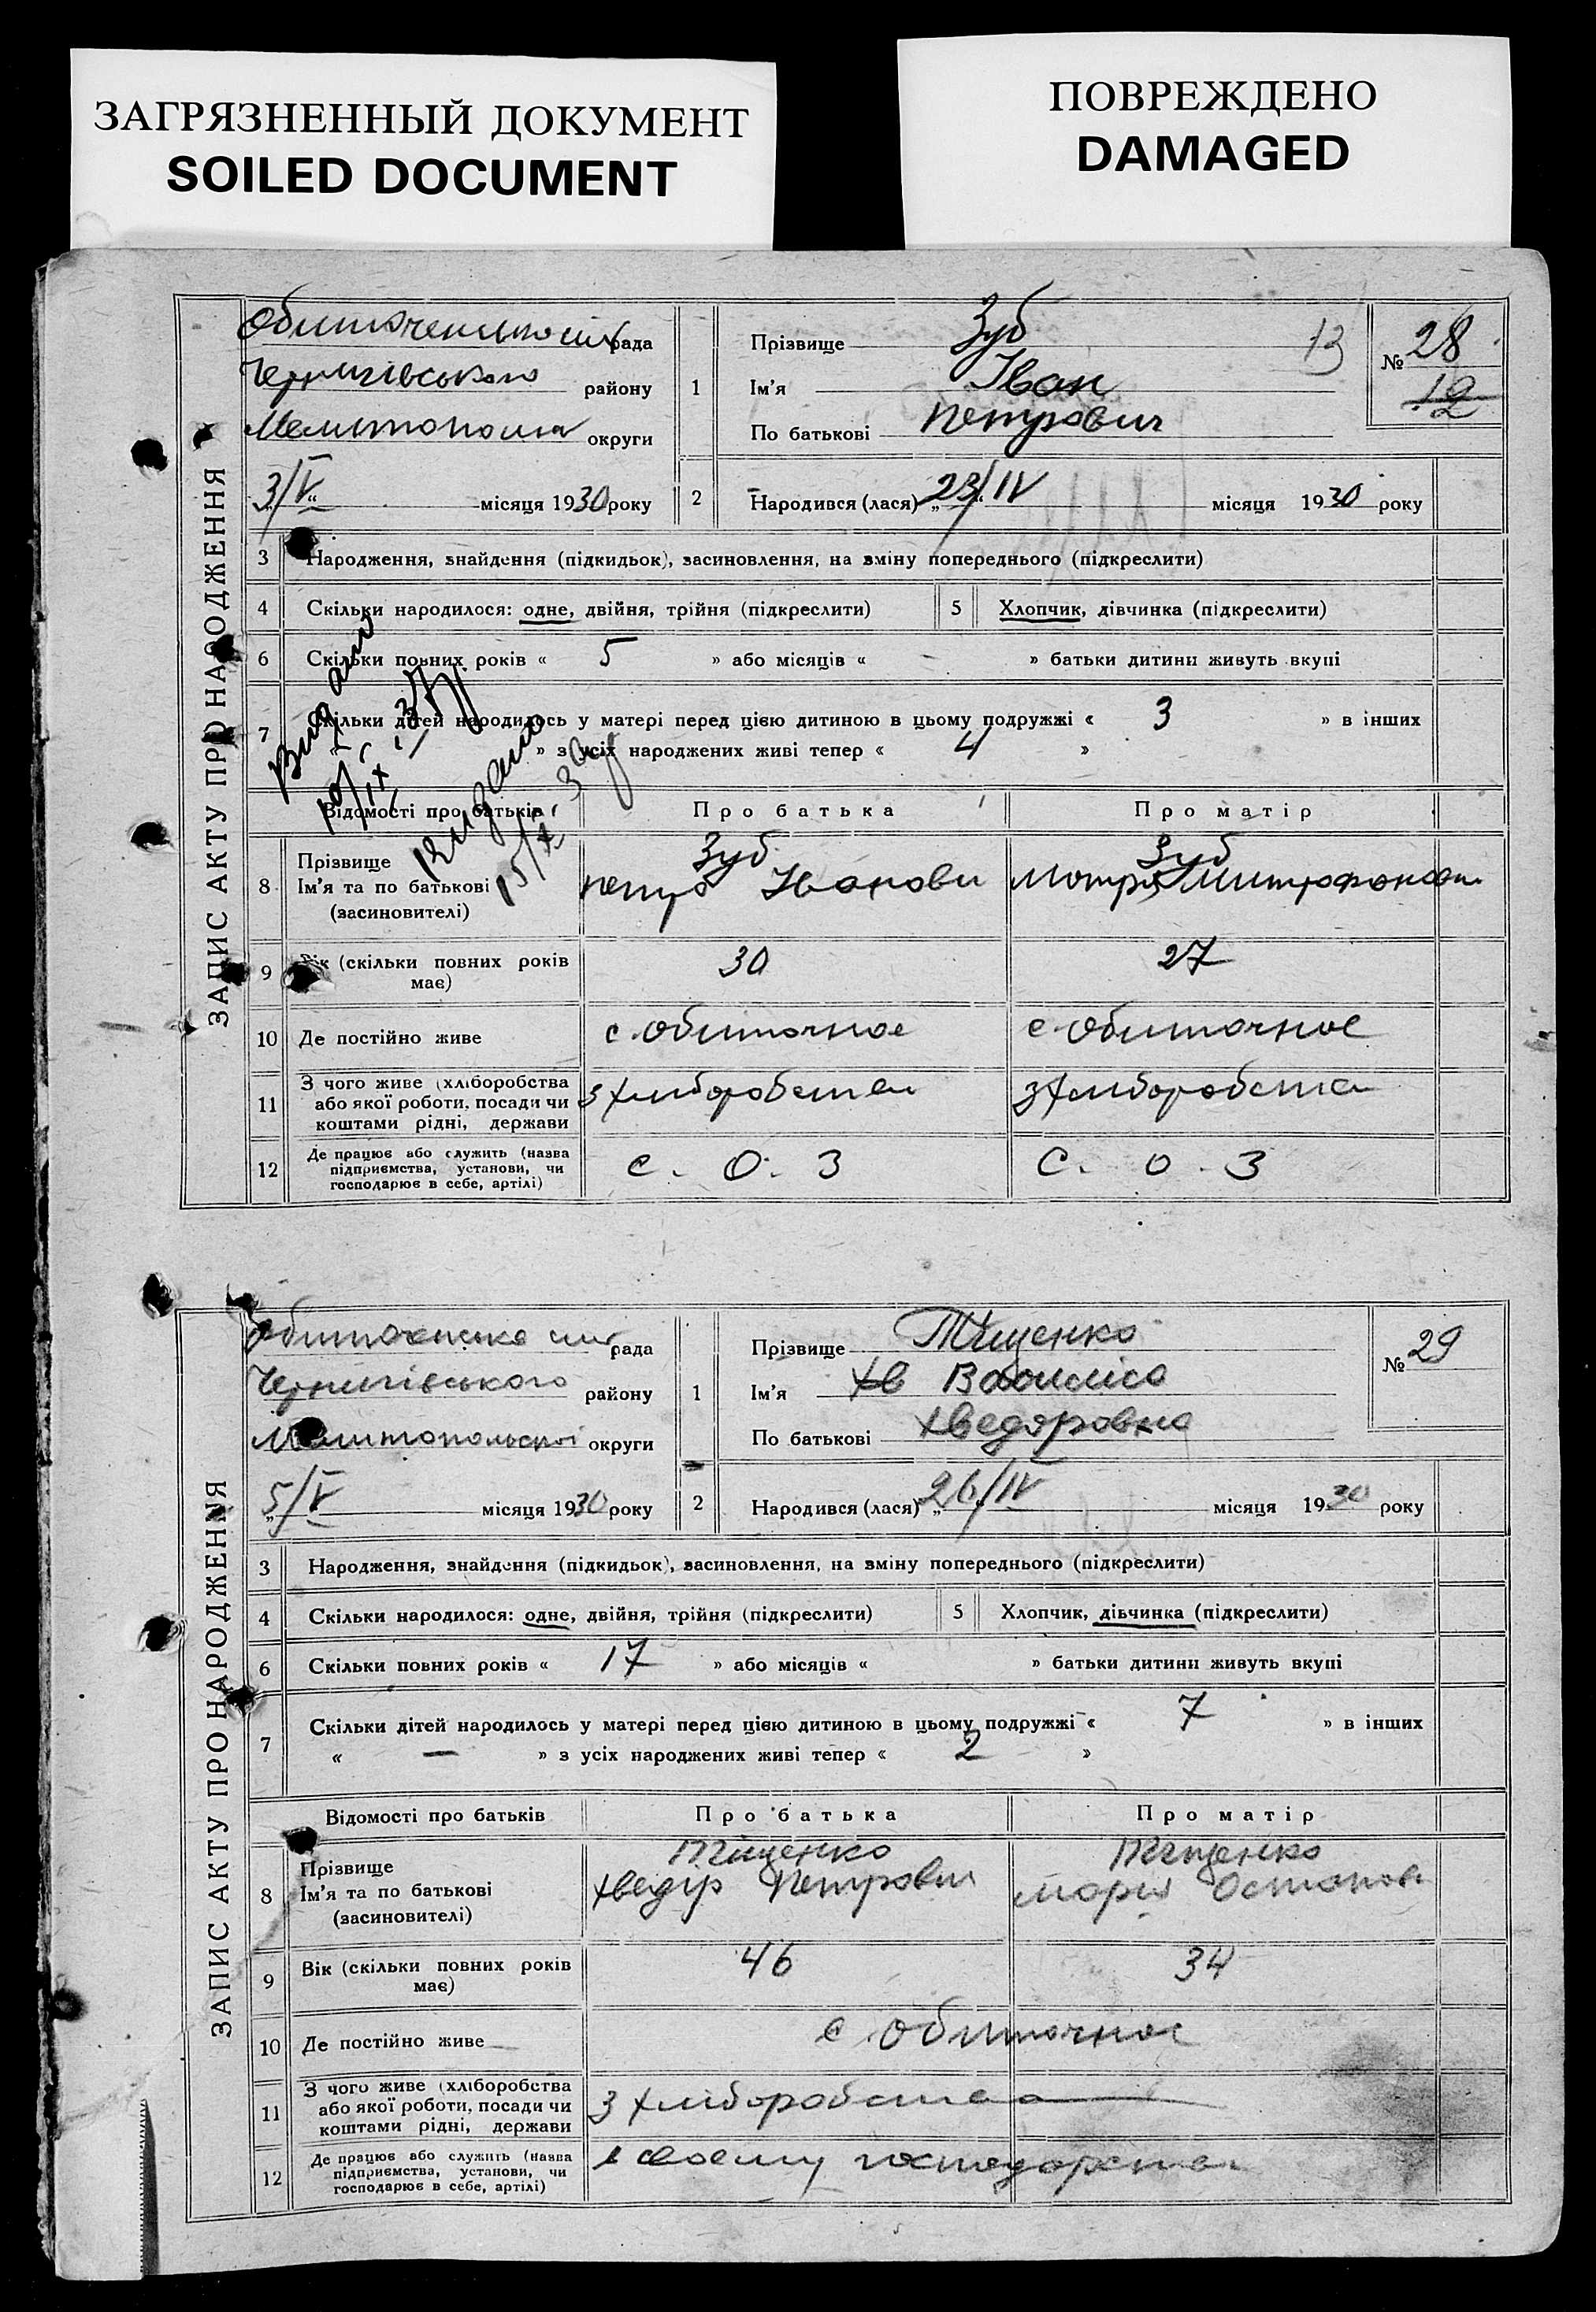 ЗАГРЯЗНЕННЫЙ ДОКУМЕНТ
SOILED DOCUMENT
ПОВРЕЖДЕНО
DAMAGED
ЗАПИС АКТУ ПРО НАРОДЖЕННЯ
рада
Чернигівського району
округи
3/V місяця 1930 року
1
Прізвище Зуб
Ім'я Іван
По батькові Петрович
13
№ 28
12
2 Народився (лася) „23/IV местяця 1930 року
3 Народження, знайдення (підкидьок), засиновлення, на зміну попереднього (підкреслити)
4 Скільки народилося: одне, двійня, трійня (підкреслити)
5 Хлопчик, дівчинка (підкреслити)
6 Скільки повних років « 5 » або місяців « - » батьки дитини живуть вкупі
7 Скільки дітей народилось у матері перед цією дитиною в цьому подружжі « 3 » в інших
» з усіх народжених живі тепер « 4 »
Видано
10/IX 37
Видано
15/X 38
Відомості про батьків
Про батька
Про матір
8 Прізвище
Ім'я та по батькові
(засиновителі)
Зуб
Петро Іванови
Зуб
Мотря Митрофанов
9 Вік (скільки повних років має)
30
27
10 Де постійно живе
с. Обиточное
с. Обиточное
11 З чого живе (хліборобства
або якої роботи, посади чи
коштами рідні, держави
з хліборобства
з хліборобства
12 Де працює або служить (назва
підприємства, установи, чи
господарює в себе, артілі)
С. О. З
С. О. З
ЗАПИС АКТУ ПРО НАРОДЖЕННЯ
Обиточенська рада
Чернигівського району
Мелитопольскої округи
5/V місяця 1930 року
1
Прізвище Тищенко
Ім'я Хв Василіса
По батькові Хведоровна
№ 29
2 Народився (лася) „26/IV місяця 1930 року
3 Народження, знайдення (підкидьок), засиновлення, на зміну попереднього (підкреслити)
4 Скільки народилося: одне, двійня, трійня (підкреслити)
5 Хлопчик, дівчинка (підкреслити)
6 Скільки повних років « 17 » або місяців « » батьки дитини живуть вкупі
7 Скільки дітей народилось у матері перед цією дитиною в цьому подружжі « 7 » в інших
« — » з усіх народжених живі тепер « 2 »
Відомості про батьків
Про батька
Про матір
8 Прізвище
Ім'я та по батькові
(засиновителі)
Тищенко
Хведір Петрови
Тищенко
Мария Остапов
9 Вік (скільки повних років має)
46
34
10 Де постійно живе
с. Обиточное
11 З чого живе (хліборобства
або якої роботи, посади чи
коштами рідні, держави
з хліборобства
12 Де працює або служить (назва
підприємства, установи, чи
господарює в себе, артілі)
в своему господарстві